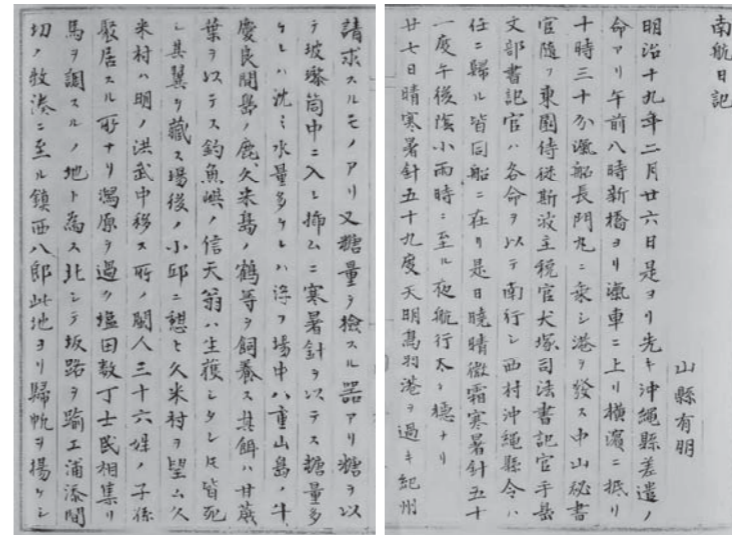 南航日記
山縣有朋
明治十九年二月廿六日是ヨリ先キ沖繩縣差遣ノ
命アリ午前八時新橋ヨリ滊車ニ上リ横濵ニ抵リ
十時三十分滊船長門丸ニ乘シ港ヲ發ス中山秘書
官隨フ東園侍從斯波主税官犬塚司法書記官手島
文部書記官ハ各命ヲ以テ南行シ西村沖繩縣令ハ
任ニ歸ル皆同船ニ在リ是日曉晴微霜寒暑針五十
一度午後陰小雨時ニ至ル夜航行太タ穏ナリ
廿七日晴寒暑針五十九度天明鳥羽港ヲ過キ紀州
請求スルモノアリ又糖量ヲ檢スル器アリ糖ヲ以
テ玻瓈筒中ニ入レ挿ムニ寒暑針ヲ以テス糖量多
ケレハ沈ミ水量多ケレハ浮フ場中八重山島ノ牛
慶良間島ノ鹿久米島ノ鶴等ヲ飼養ス其餌ハ甘蔗
葉ヲ以テス釣魚嶼ノ信天翁ハ生獲シタレ𪜈皆死
シ其翼ヲ藏ス場後ノ小邱ニ憩ヒ久米村ヲ望ム久
米村ハ明ノ洪武中移ス所ノ閩人三十六姓ノ子孫
聚居スル所ナリ潟原ヲ過ク塩田数丁士民相集リ
馬ヲ調スルノ地ト為ス北シテ坂路ヲ踰エ浦添間
切ノ牧湊ニ至ル鎮西八郎此地ヨリ歸帆ヲ揚ケシ